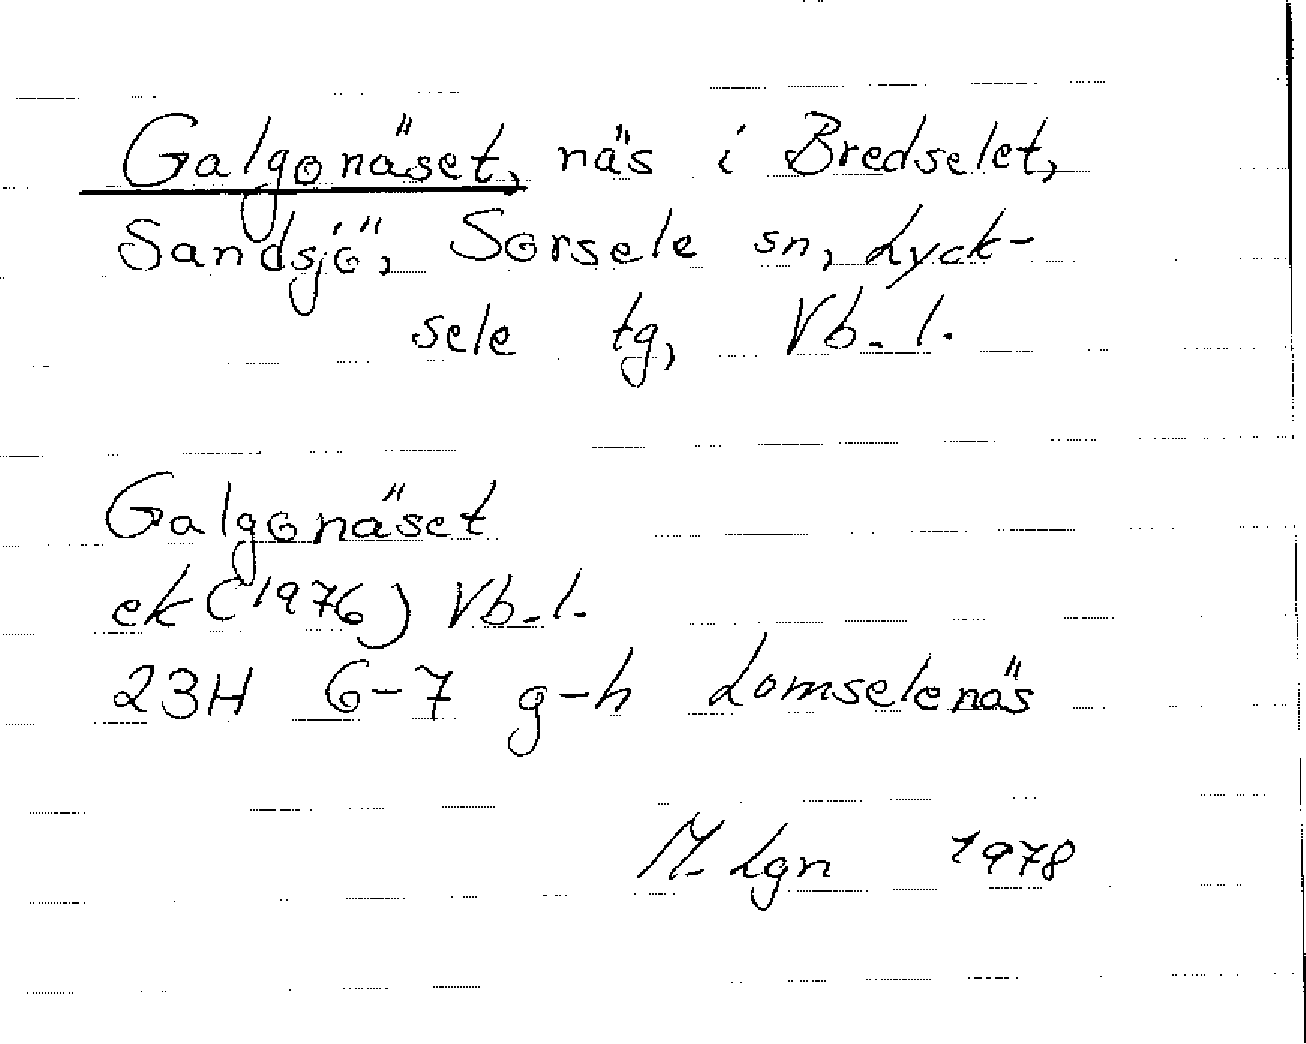 Galgonäset, näs i Bredselet,
Sandsjö, Sorsele sn, Lyck-
sele tg, Vb. l.
Galgonäset
ek (1976) Vb. l.
23H 6-7 g-h Lomselenäs
M. Lgn 1978